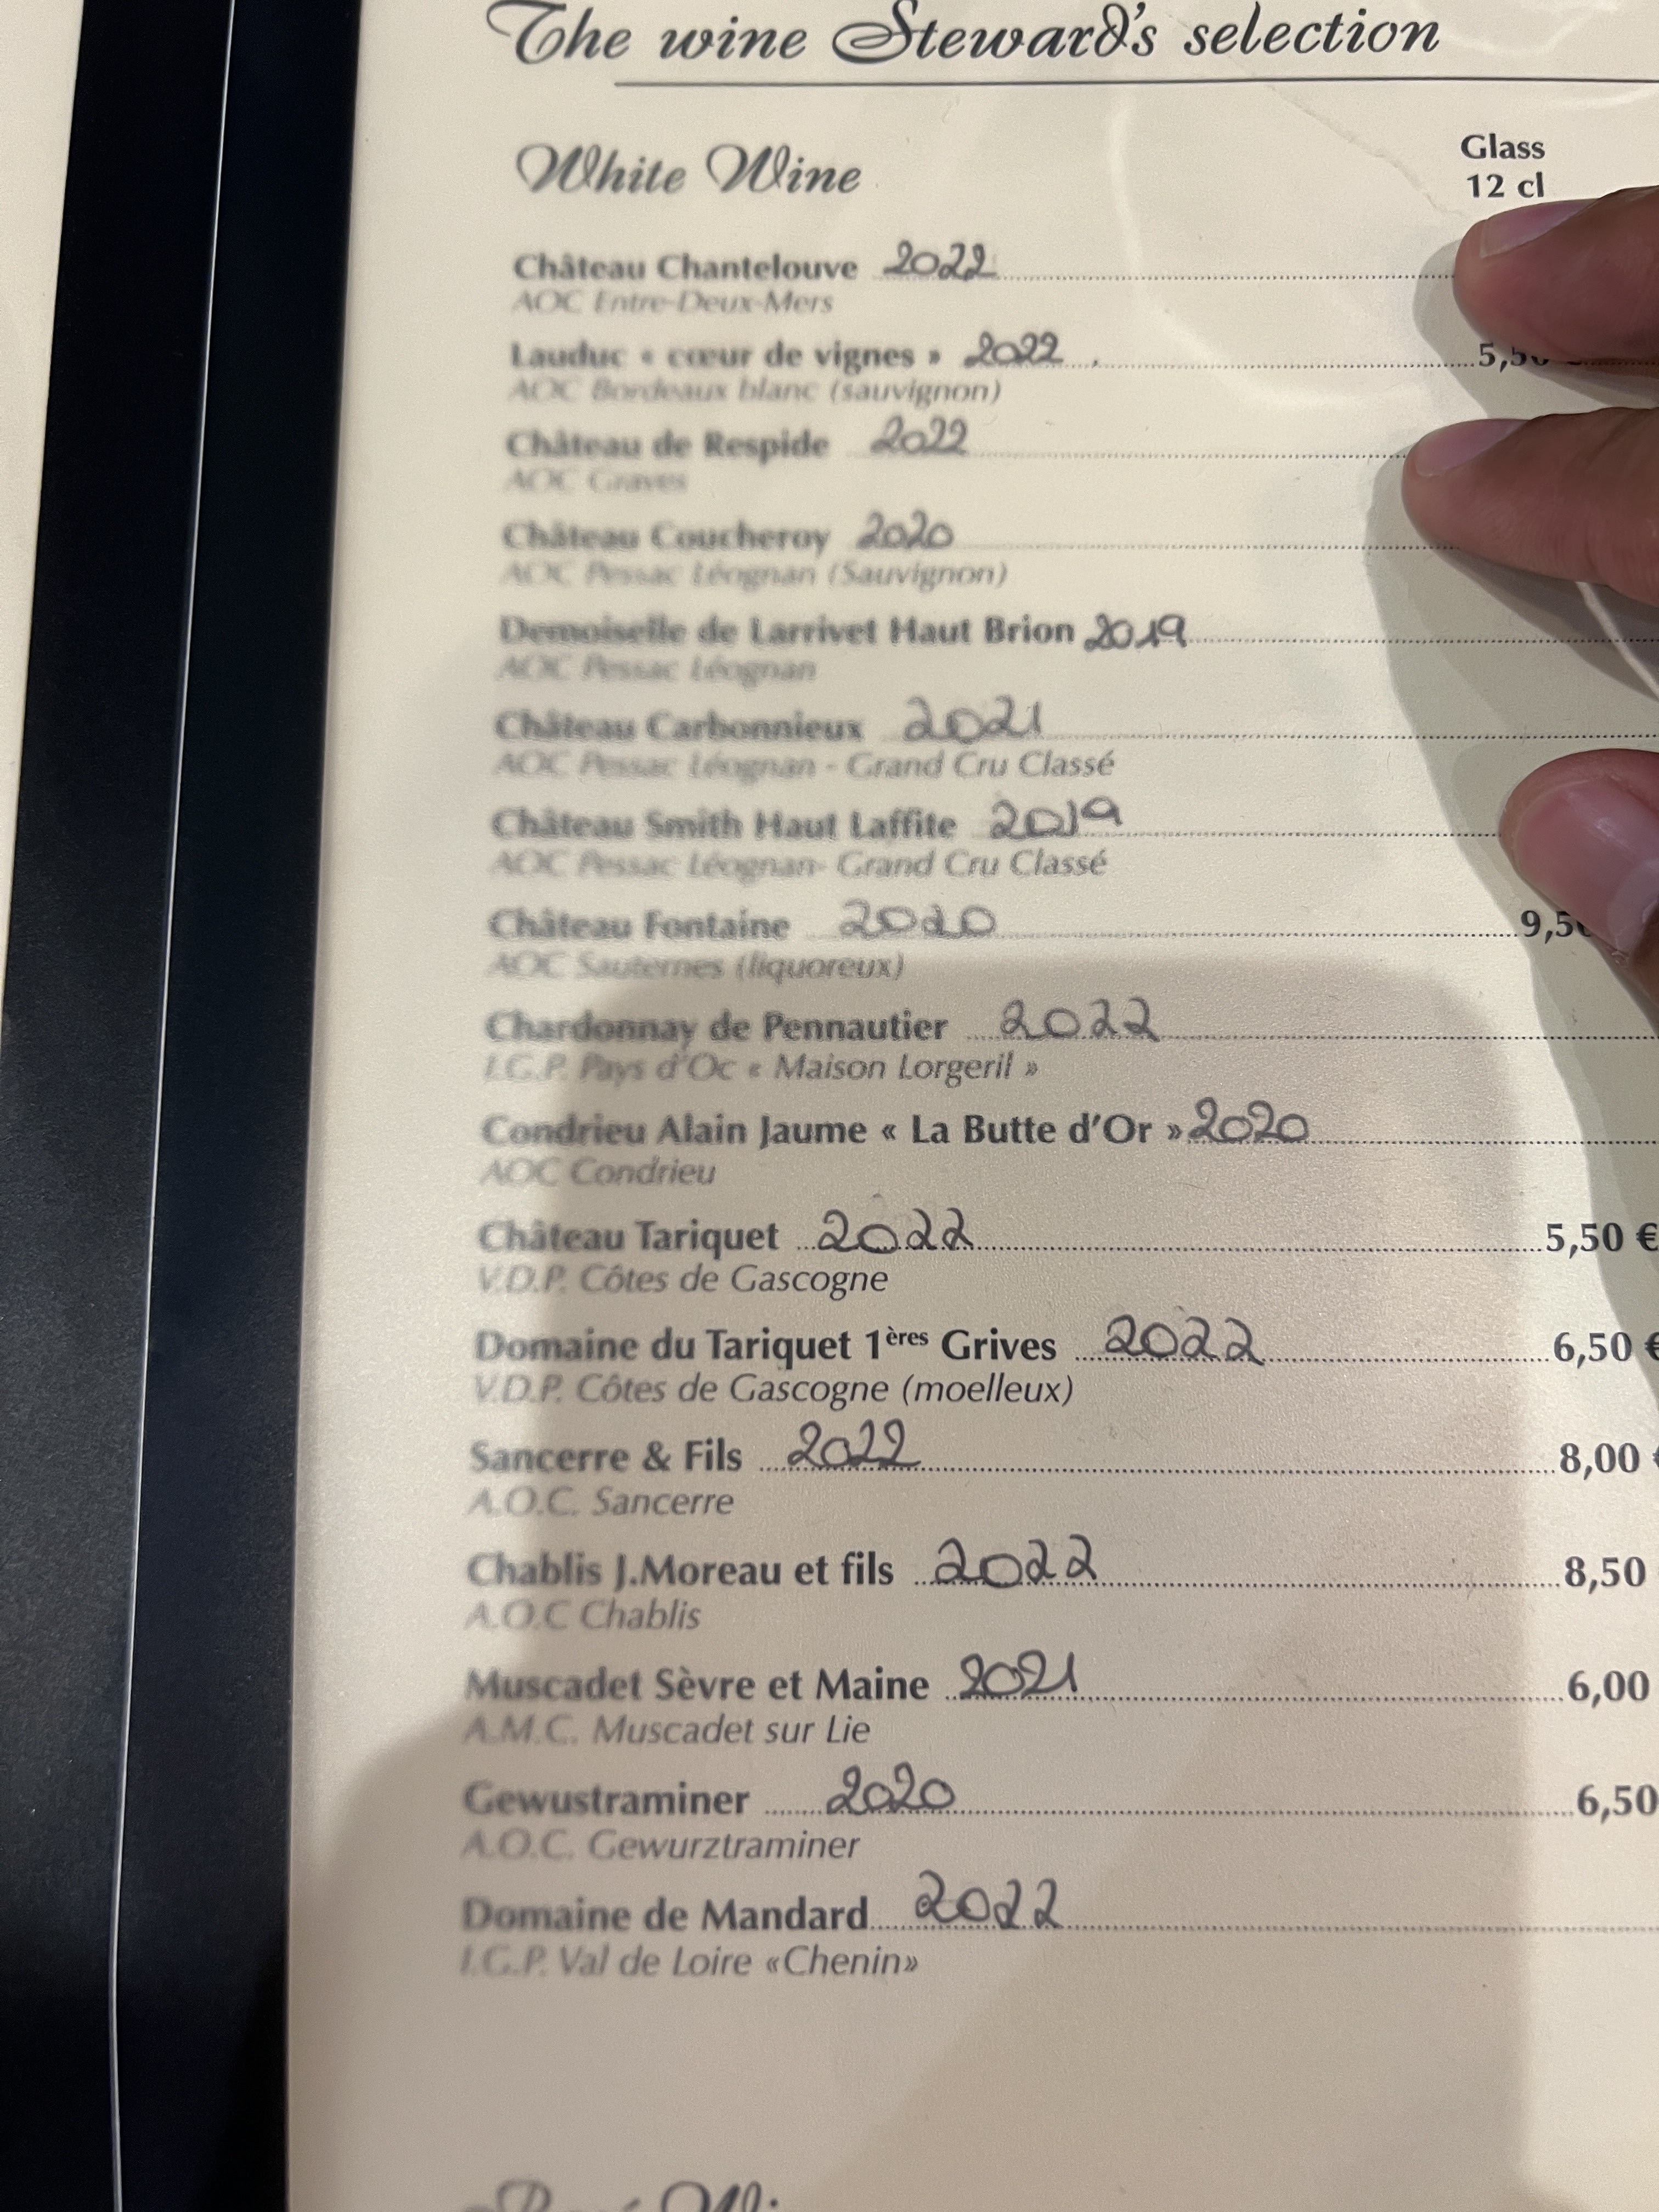 The wine Steward's selection
White Wine
Glass
12 cl
Château Chantelouve 2022
AOC Entre-Deux-Mers
Lauduc « cœur de vignes » 2022 5,50
AOC Bordeaux blanc (sauvignon)
Château de Respide 2022
AOC Graves
Château Coucheroy 2020
AOC Pessac Léognan (Sauvignon)
Demoiselle de Larrivet Haut Brion 2019
AOC Pessac Léognan
Château Carbonnieux 2021
AOC Pessac Léognan - Grand Cru Classé
Château Smith Haut Laffite 2019
AOC Pessac Léognan- Grand Cru Classé
Château Fontaine 2020 9,5
AOC Sauternes (liquoreux)
Chardonnay de Pennautier 2022
I.G.P. Pays d'Oc « Maison Lorgeril »
Condrieu Alain Jaume « La Butte d'Or » 2020
AOC Condrieu
Château Tariquet 2022 5,50 €
V.D.P. Côtes de Gascogne
Domaine du Tariquet 1ères Grives 2022 6,50 €
V.D.P. Côtes de Gascogne (moelleux)
Sancerre & Fils 2022 8,00 €
A.O.C. Sancerre
Chablis J.Moreau et fils 2022 8,50
A.O.C Chablis
Muscadet Sèvre et Maine 2021 6,00
A.M.C. Muscadet sur Lie
Gewustraminer 2020 6,50
A.O.C. Gewurztraminer
Domaine de Mandard 2022
I.G.P. Val de Loire «Chenin»